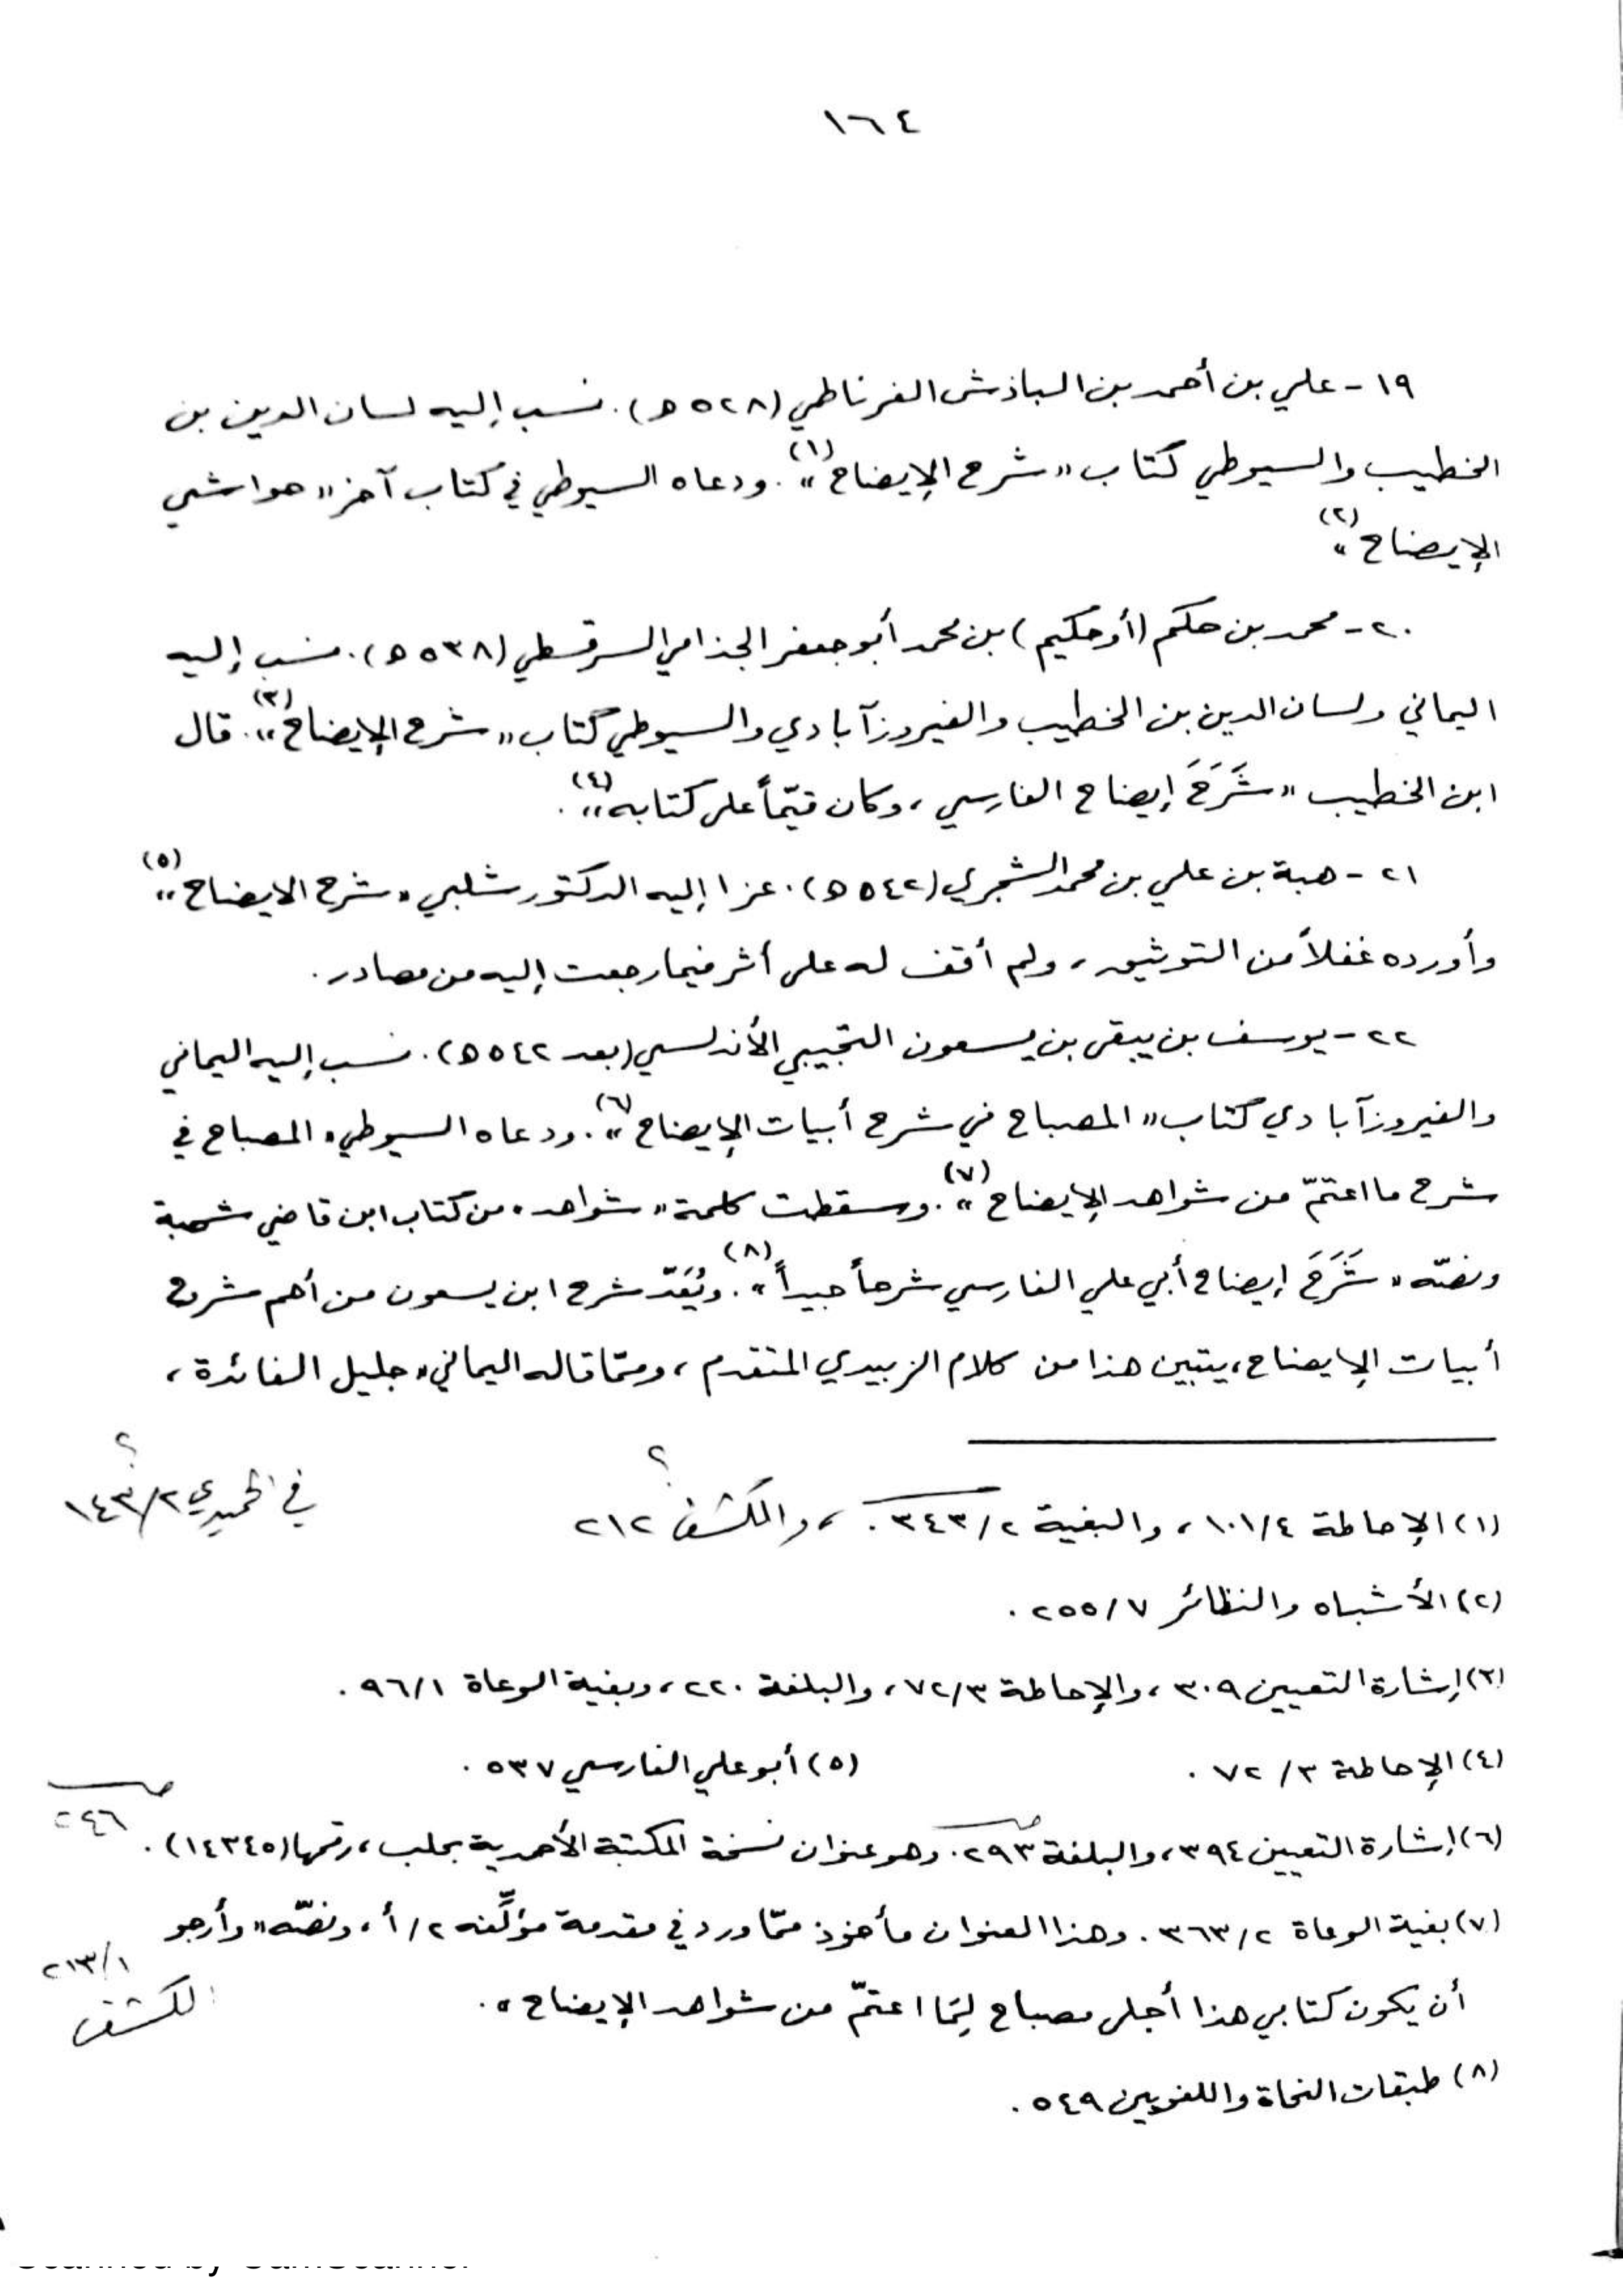 ١٦٤
١٩ - علي بن أحمد بن الباذش الغرناطي (٥٢٨ ه). نسب إليه لسان الدين بن
الخطيب والسيوطي كتاب «شرح الإيضاح»(١). ودعاه السيوطي في كتاب آخر «حواشي
الإيضاح»(٢)
٢٠ - محمد بن حكم (أو حكيم) بن محمد أبو جعفر الجذامي السرقسطي (٥٣٨ ه). نسب إليه
اليماني ولسان الدين بن الخطيب والفيروزآبادي والسيوطي كتاب «شرح الإيضاح»(٣). قال
ابن الخطيب «شَرَحَ إيضاح الفارسي، وكان قيّماً على كتابه»(٤).
٢١ - هبة بن علي بن محمد الشجري (٥٤٢ ه). عزا إليه الدكتور شلبي «شرح الايضاح»(٥)
وأورده غفلاً من التوثيق، ولم أقف له على أثر فيما رجعت إليه من مصادر.
٢٢ - يوسف بن يبقى بن يسعون التجيبي الأندلسي (بعد ٥٤٢ ه). نسب إليه اليماني
والفيروزآبادي كتاب «المصباح في شرح أبيات الإيضاح»(٦). ودعاه السيوطي «المصباح في
شرح ما اعتمّ من شواهد الإيضاح»(٧). وسقطت كلمة «شواهد» من كتاب ابن قاضي شهبة
ونصّه «شَرَحَ إيضاح أبي علي الفارسي شرحاً جيداً»(٨). ويُعَدّ شرح ابن يسعون من أهم شروح
أبيات الإيضاح، يتبين هذا من كلام الزبيدي المتقدم، وممّا قاله اليماني «جليل الفائدة،
(١) الإحاطة ١٠١/٤، والبغية ٣٤٣/٢. ، والكشف ٢١٢ ؟
في الحميدي ١٤٣/٢ ؟
(٢) الأشباه والنظائر ٢٥٥/٧.
(٣) إشارة التعيين ٣٠٩، والإحاطة ٧٢/٣، والبلغة ٢٢٠، وبغية الوعاة ٩٦/١.
(٤) الإحاطة ٧٢/٣. (٥) أبو علي الفارسي ٥٣٧.
ص ٢٤٦
(٦) إشارة التعيين ٣٩٤، والبلغة ٢٩٣. وهو عنوان نسخة المكتبة الأحمدية بحلب، رقمها (١٤٣٤٥).
(٧) بغية الوعاة ٣٦٣/٢. وهذا العنوان مأخوذ ممّا ورد في مقدمة مؤلِّفه ٢/أ، ونصّه «وأرجو
٢١٣/١
الكشف
أن يكون كتابي هذا أجلى مصباح لِمَا اعتمّ من شواهد الإيضاح».
(٨) طبقات النحاة واللغويين ٥٤٩.